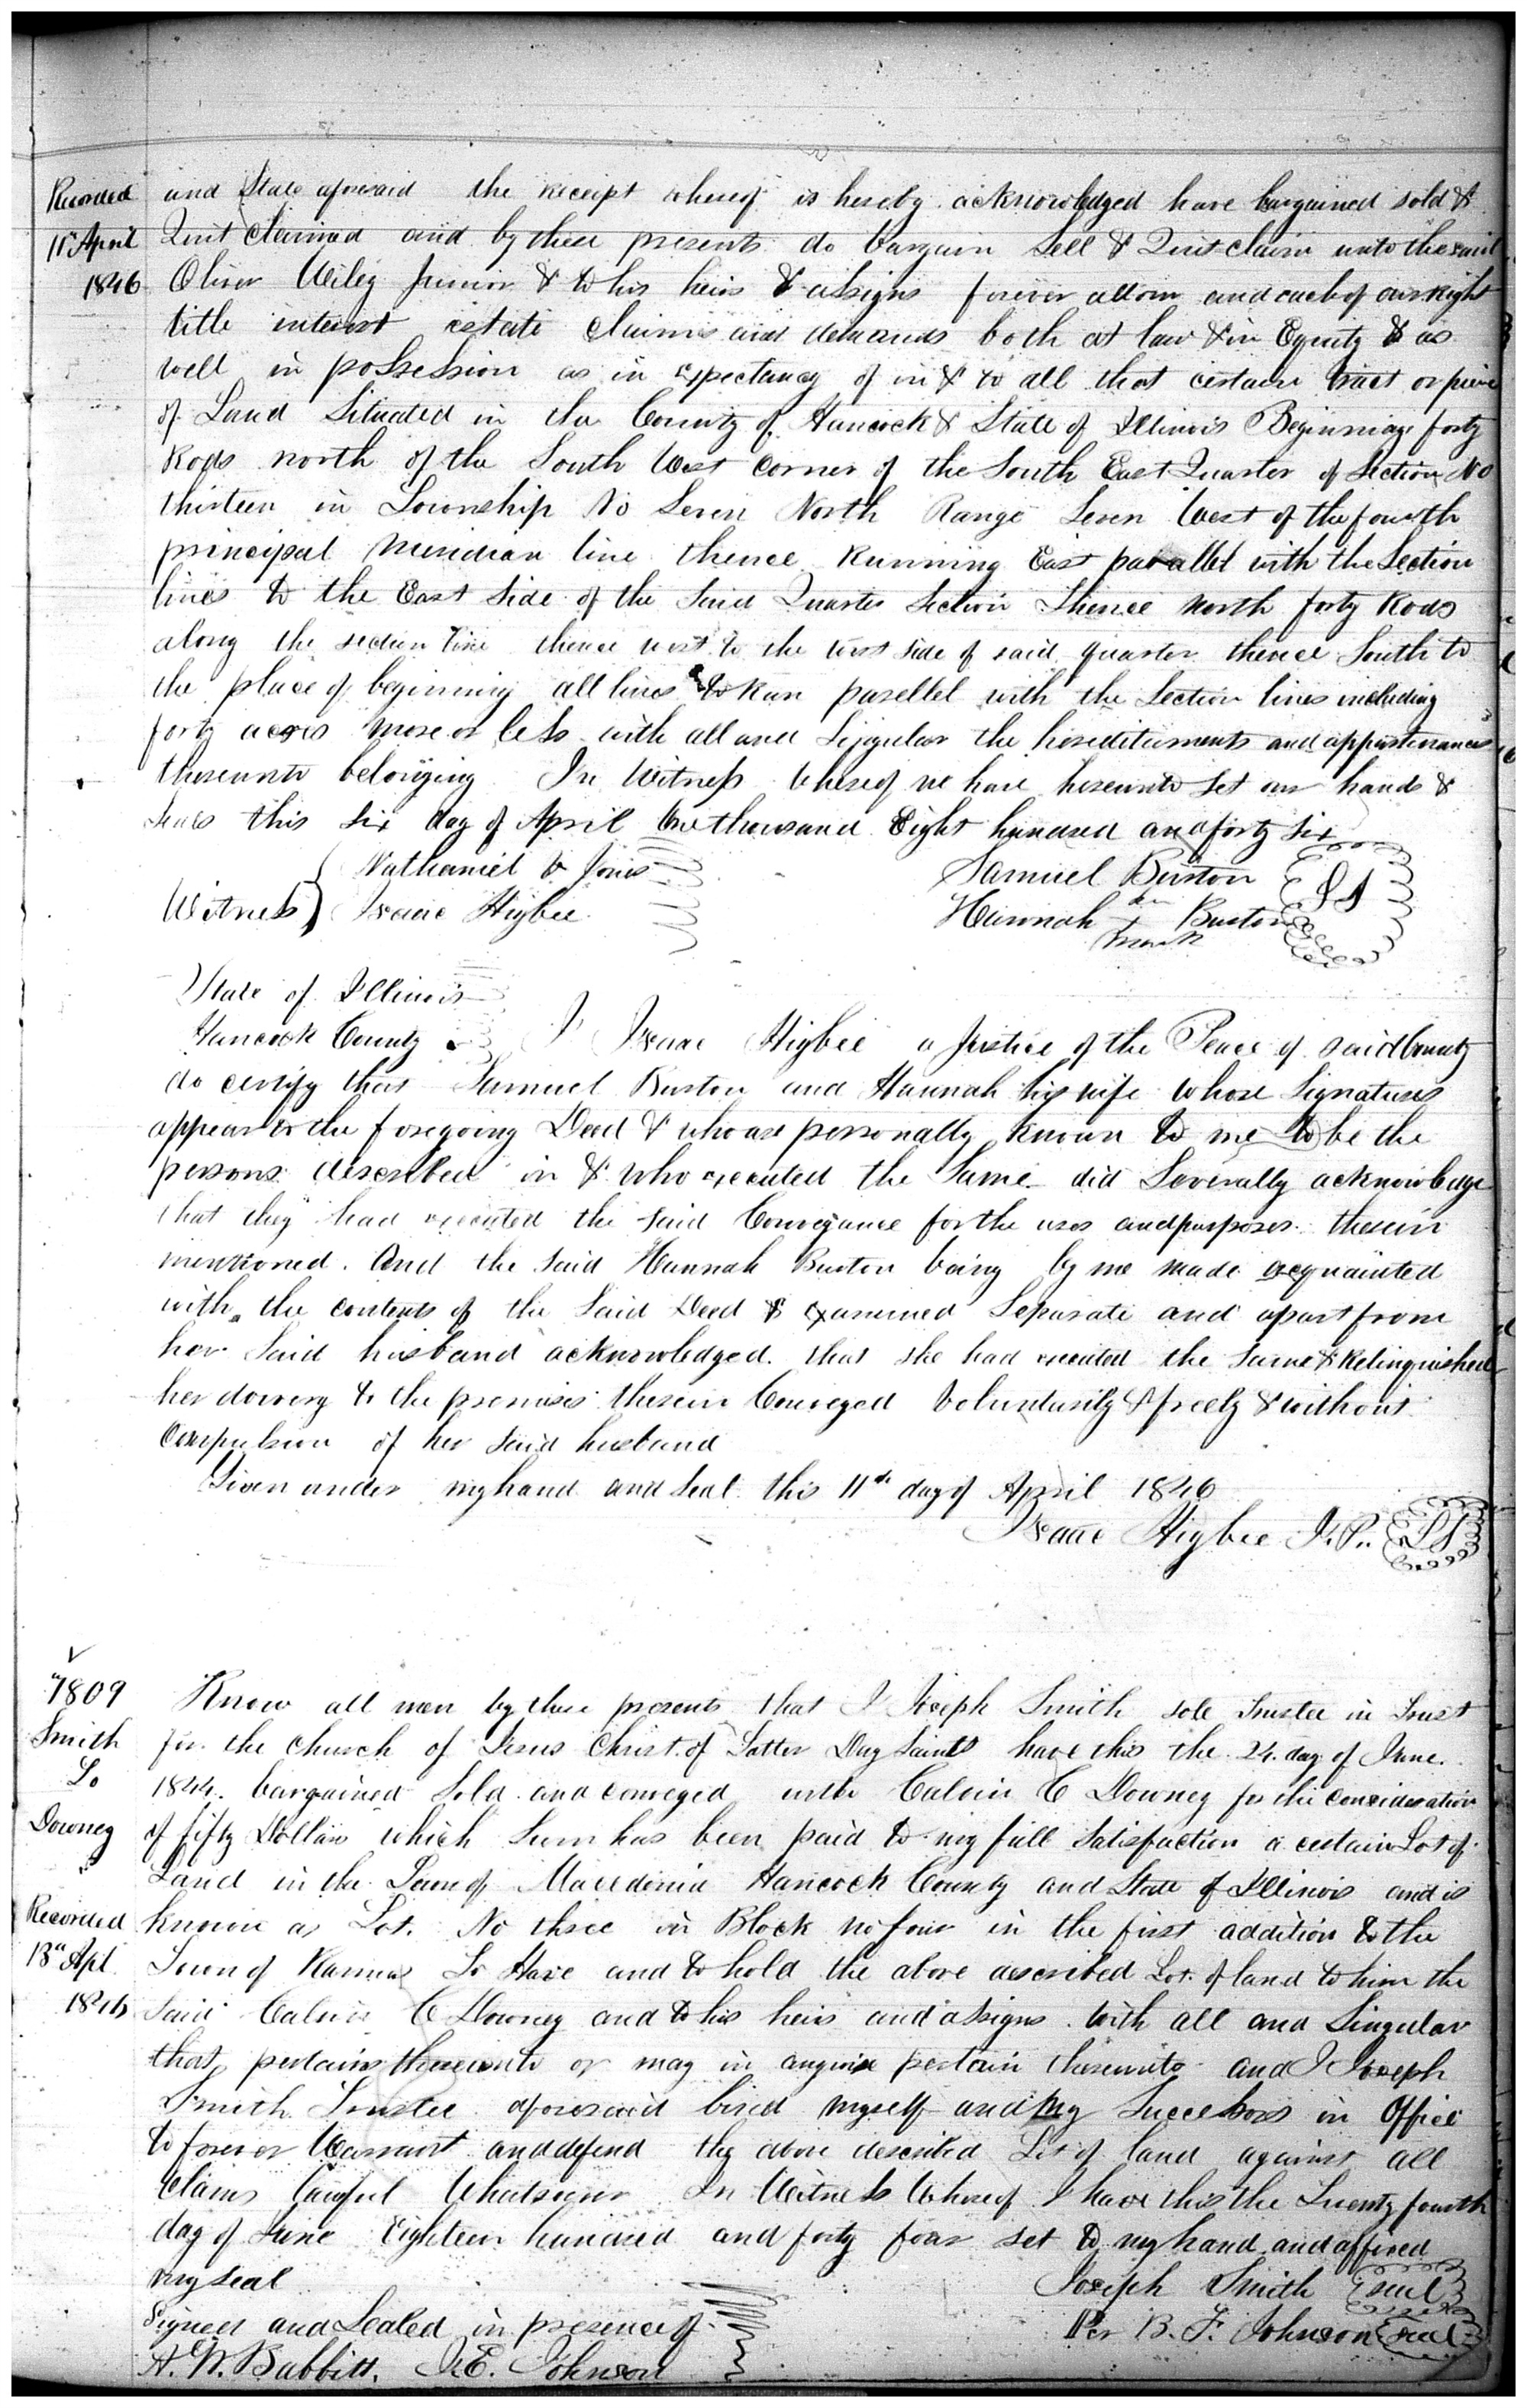 Recorded
11th April
1846
and State aforesaid the receipt whereof is hereby acknowledged have bargained sold &
Quit Claimed and by these presents do bargain Sell & Quit claim unto the said
Oliver Wiley Junior & to his heirs & assigns forever all our and each of our right
title interest estate claims and demands both at law & in Equity & as
well in possession as in expectancy of in & to all that certain tract or piece
of Land Situated in the County of Hancock & State of Illinois Beginning forty
Rods north of the South West corner of the South East Quarter of Section No
thirteen in Township No Seven North Range Seven West of the fourth
principal Meridian line thence Running East parallel with the Section
lines to the East Side of the Said Quarter Section Thence North forty Rods
along the section line thence west to the west side of said quarter thence South to
the place of beginning all lines to Run parellel with the Section lines including
forty acres more or less with all and Singular the hereditaments and appurtenances
thereunto belonging In Witness Whereof we have hereunto Set our hands &
Seals this Six day of April One thousand Eight hundred and forty Six
Witness Nathaniel V Jones
Isaac Higbee
Samuel Burton LS
Hannah her X mark Burton
State of Illinois
Hancock County I Isaac Higbee a Justice of the Peace of said County
do certify that Samuel Burton and Hannah his wife whose Signatures
appear to the foregoing Deed & who are personally known to me to be the
persons described in & who executed the Same did Severally acknowledge
that they had executed the said Conveyance for the uses and purposes therein
mentioned. And the said Hannah Burton being by me made acquainted
with the contents of the Said Deed & examined Separate and apart from
her Said husband acknowledged that she had executed the same & Relinquished
her dowery to the premises therein Conveyed Voluntarily & freely & without
Compulsion of her said husband
Given under my hand and Seal this 11th day of April 1846
Isaac Higbee J.P. LS
7809
Smith
To
Downey
Recorded
13th Apl
1846
Know all men by these presents that I Joseph Smith sole Trustee in Trust
for the Church of Jesus Christ of Latter Day Saints have this the 24 day of June
1844 bargained Sold and conveyed unto Calvin C Downey for the consideration
of fifty Dollars which Sum has been paid to my full Satisfaction a certain Lot of
Land in the Town of Macedonia Hancock County and State of Illinois and is
known as Lot No three in Block no four in the first addition to the
Town of Ramus To Have and to hold the above described Lot of land to him the
Said Calvin C Downey and to his heirs and assigns With all and Singular
that pertains thereunto or may in anywise pertain thereunto and I Joseph
Smith Trustee aforesaid bind myself and my Successors in Office
to forever Warrant and defend the above described Lot of land against all
Claims lawful Whatsoever In Witness Whereof I have this the Twenty fourth
day of June Eighteen hundred and forty four set to my hand and affixed
my seal
Joseph Smith Seal
Signed and Sealed in presence of
Per B. F. Johnson Seal
A. W. Babbitt. J. E. Johnson